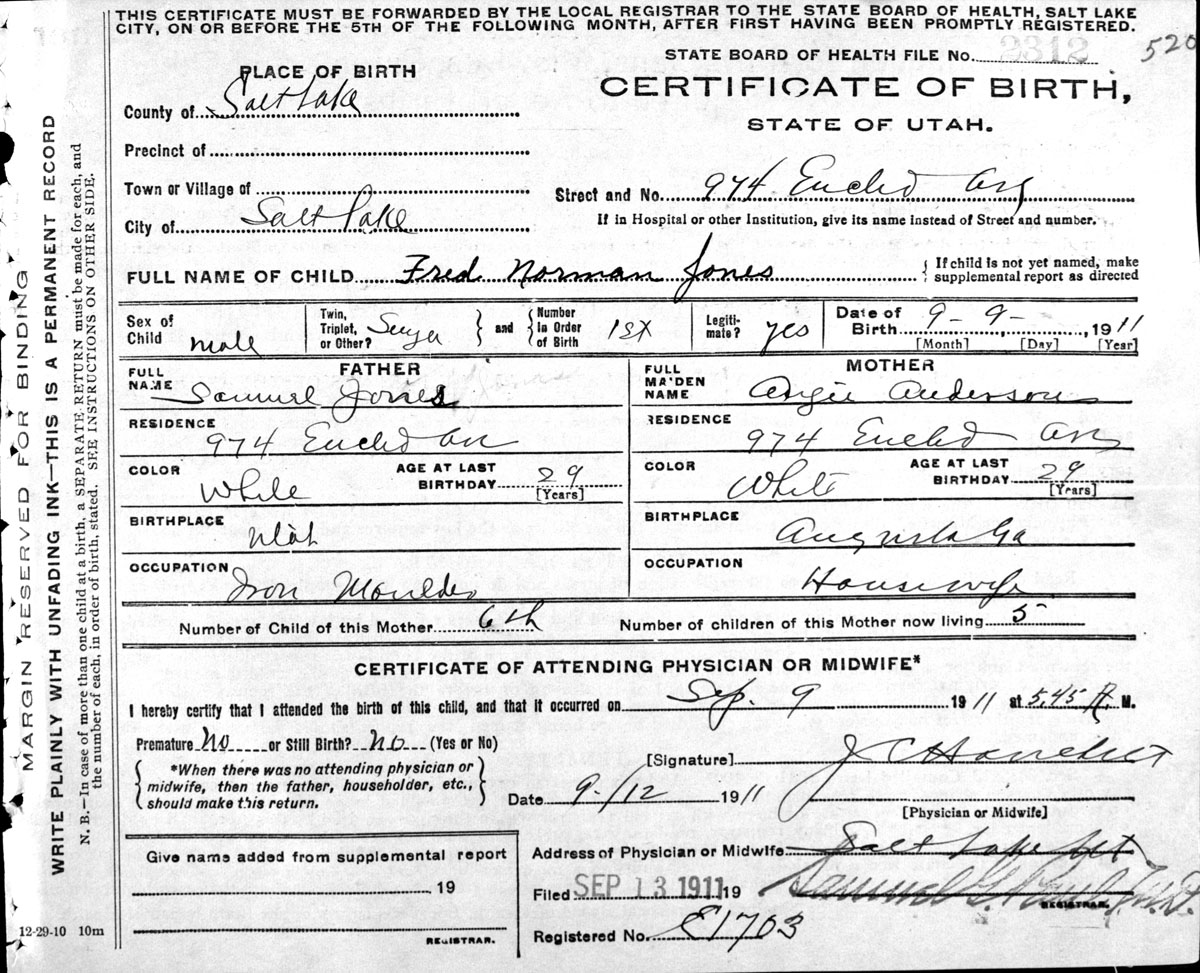 THIS CERTIFICATE MUST BE FORWARDED BY THE LOCAL REGISTRAR TO THE STATE BOARD OF HEALTH, SALT LAKE
CITY, ON OR BEFORE THE 5TH OF THE FOLLOWING MONTH, AFTER FIRST HAVING BEEN PROMPTLY REGISTERED.
STATE BOARD OF HEALTH FILE No. 2312 520
PLACE OF BIRTH
CERTIFICATE OF BIRTH,
County of Salt Lake
STATE OF UTAH.
Precinct of
Town or Village of
Street and No. 974 Euclid Av
City of Salt Lake
If in Hospital or other Institution, give its name instead of Street and number.
FULL NAME OF CHILD Fred Norman Jones { If child is not yet named, make
supplemental report as directed
Sex of Child male
Twin, Triplet, or Other? } and { Number in Order of Birth 1st
Legiti-mate? yes
Date of Birth 9 - 9 - 1911
[Month] [Day] [Year]
FATHER
FULL NAME Samuel Jones
MOTHER
FULL MAIDEN NAME Angie Anderson
RESIDENCE 974 Euclid Av
RESIDENCE 974 Euclid Av
COLOR White AGE AT LAST BIRTHDAY 29 [Years]
COLOR White AGE AT LAST BIRTHDAY 29 [Years]
BIRTHPLACE Utah
BIRTHPLACE Augusta Ga
OCCUPATION Iron Moulder
OCCUPATION Housewife
Number of Child of this Mother 6th Number of children of this Mother now living 5
CERTIFICATE OF ATTENDING PHYSICIAN OR MIDWIFE*
I hereby certify that I attended the birth of this child, and that it occurred on Sep. 9 1911 at 5.45 P. M.
Premature No or Still Birth? No (Yes or No)
[Signature] J C
{ *When there was no attending physician or
midwife, then the father, householder, etc.,
should make this return. }
Date 9/12 1911
[Physician or Midwife]
Give name added from supplemental report
19
REGISTRAR.
Address of Physician or Midwife Salt Lake
Filed SEP 13 1911 19 Samuel G. Paul, M.D.
REGISTRAR.
Registered No. E1703
12-29-10 10m
MARGIN RESERVED FOR BINDING
WRITE PLAINLY WITH UNFADING INK—THIS IS A PERMANENT RECORD
N. B.—In case of more than one child at a birth, a SEPARATE RETURN must be made for each, and
the number of each, in order of birth, stated. SEE INSTRUCTIONS ON OTHER SIDE.